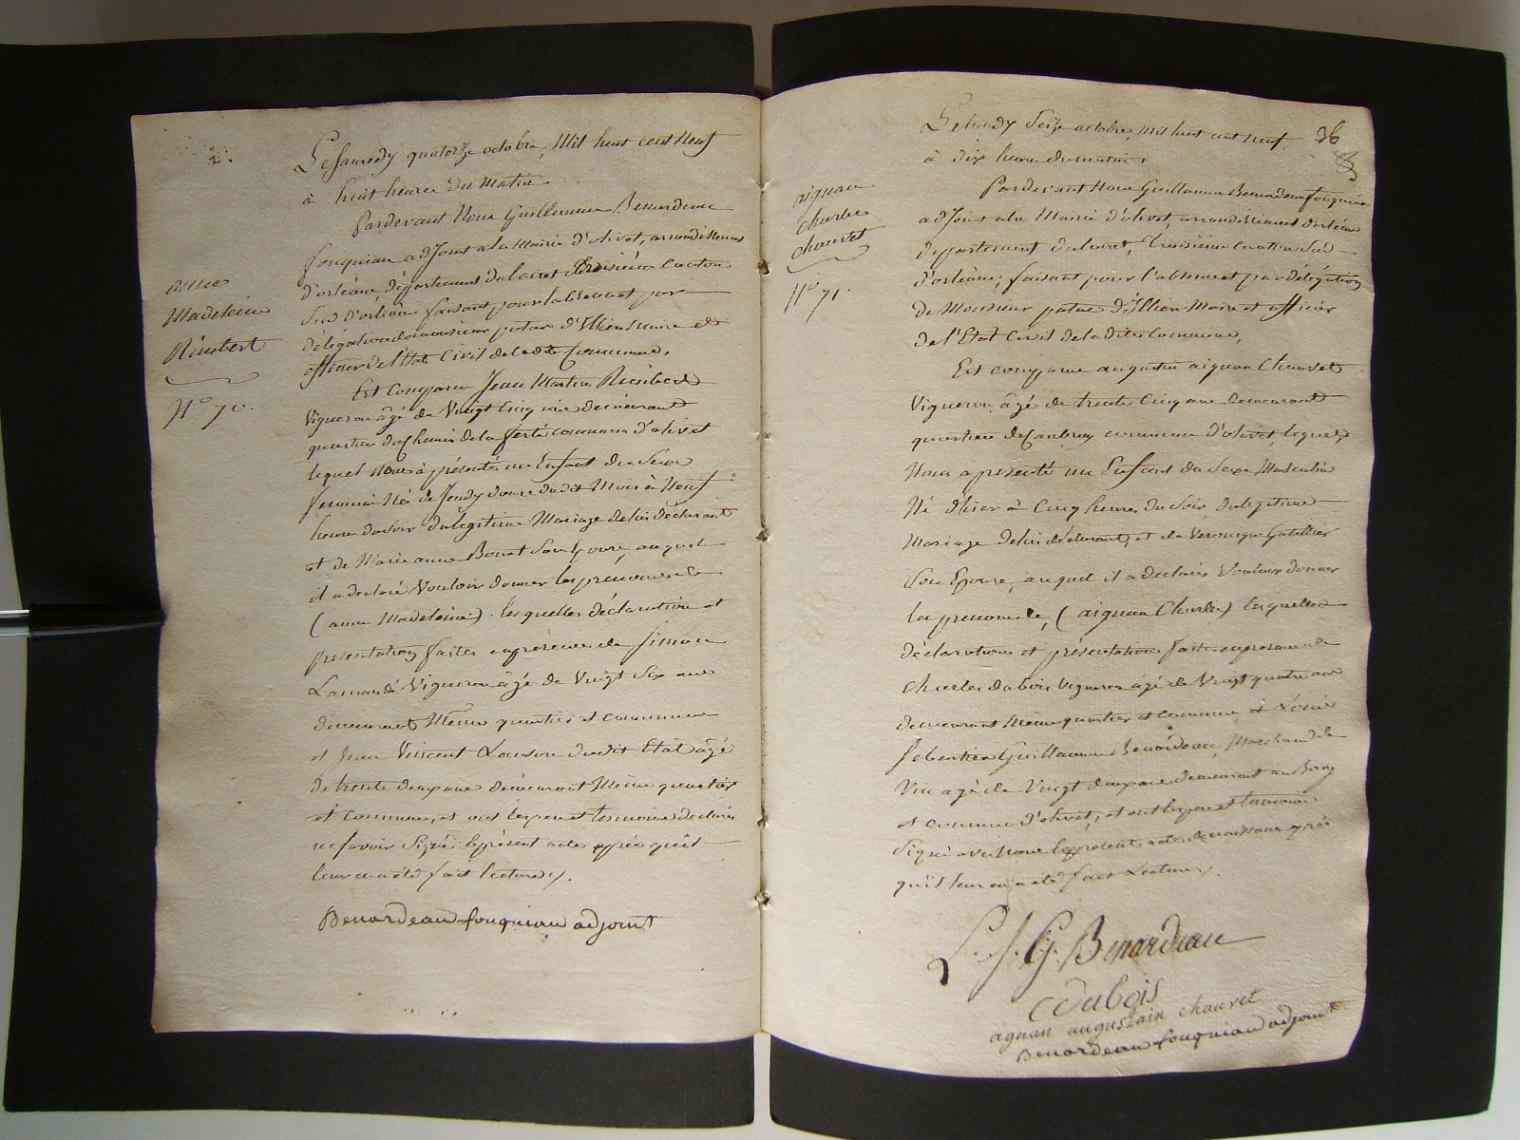 Le Samedy quatorze octobre, Mil huit cent Neuf
à huit heures du Matin.
Pardevant Nous Guillaume Benardeau
fouqniau adJoint a la Mairie d'olivet, arrondissement
d'orléans, département du loiret troisième Canton
Sud d'orléans faisant pour l'absence et par
délégation de monsieur patas d'Illiers maire et
officier de l'état Civil de la dite Commune,
Est Comparu Jean Martin Rimbert
Vigneron âgé de Vingt Cinq ans demeurant
quartier du Chemin de la ferté commune d'olivet
lequel Nous à présenté un Enfant du Sexe
féminin Né de Jeudy douze dudit Mois à Neuf
heures du soir du légitime Mariage de lui déclarant
et de Marie anne Bonet Son Epouse, auquel
il a déclaré Vouloir donner les prenoms de
(anne Madeleine). lesquelles déclaration et
présentation faites en présence de Simon
Vigneron âgé de Vingt Six ans
demeurant Même quartier et commune
et Jean Vincent dudit Etat âgé
de trente deux ans demeurant Même quartier
et Commune, et ont les pere et temoins déclarés
ne savoir Signé le présent acte après qu'il
leur en a été fait lecture.
Benardeau fouqniau adjoint
anne
Madeleine
Rimbert
N° 70.
36
Le lundy Seize octobre Mil huit cent neuf
à dix heure du matin.
Pardevant Nous Guillaume Benardeau fouqniau
adJoint a la Mairie d'olivet, arrondissement d'orléans
département du loiret, troisieme Canton Sud
d'orléans, faisant pour l'absence et par délégation
de Monsieur patas d'Illiers Maire et officier
de l'Etat Civil de la dite Commune,
Est comparu augustin aignan Chauvet
Vigneron, âgé de trente Cinq ans demeurant
quartier de commune d'olivet lequel
Nous a présenté un Enfant du Sexe Masculin
Né d'hier à Cinq heures du Soir du légitime
Mariage de lui déclarant, et de Veronique Gatellier
Son Epouse, auquel il a déclaré Vouloir donner
les prenoms de, (aignan Charles) lesquelles
déclarations et présentation faites en presence de
Charles dubois Vigneron âgé de Vingt quatre ans
demeurant même quartier et commune et Louis
Sebastien Guillaume Benardeau, Marchand de
Vin âgé de Vingt deux ans demeurant au Bourg
et commune d'olivet, et ont les pere et temoins
Signé avec Nous le présent acte de naissance après
qu'il leur en a été fait Lecture.
aignan
charles
chauvet
N° 71.
L. S. G. Benardeau
C dubois
agnan augustain chauvet
Benardeau fouqniau adjoint